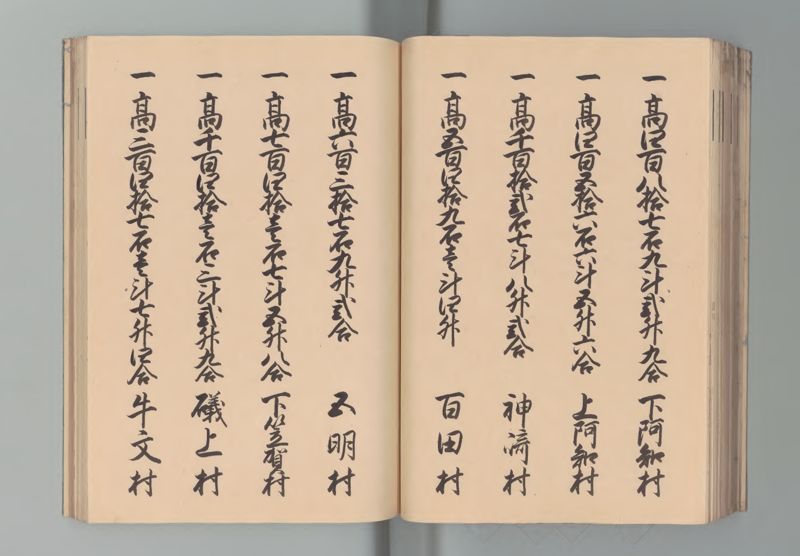 一 高四百八拾七石九斗弐升九合 下阿知村
一 高四百五拾六石六斗五升六合 上阿知村
一 高千百拾弐石七斗八升弐合 神崎村
一 高五百四拾九石壱斗四升 百田村
一 高六百三拾七石九升弐合 五明村
一 高七百四拾壱石七斗五升八合 下笠賀村
一 高千百四拾壱石三斗弐升九合 磯上村
一 高三百四拾七石壱斗七升四合 牛文村